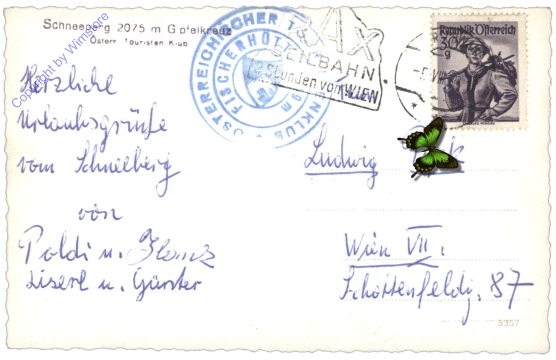 Schneeberg 2075 m Gipfelkreuz
Österr. Touristen Klub
Copyright by Wimstore
Herzliche
Urlaubsgrüße
vom Schneeberg
von
Poldi u. Heinz
Liserl u. Günter
ÖSTERREICHISCHER
FISCHERHÜTTE
RAX
SEILBAHN
2 Stunden von WIEN
Republik Österreich
30 g
Ludwig
Wien VII.
Schottenfeldg. 87
5357